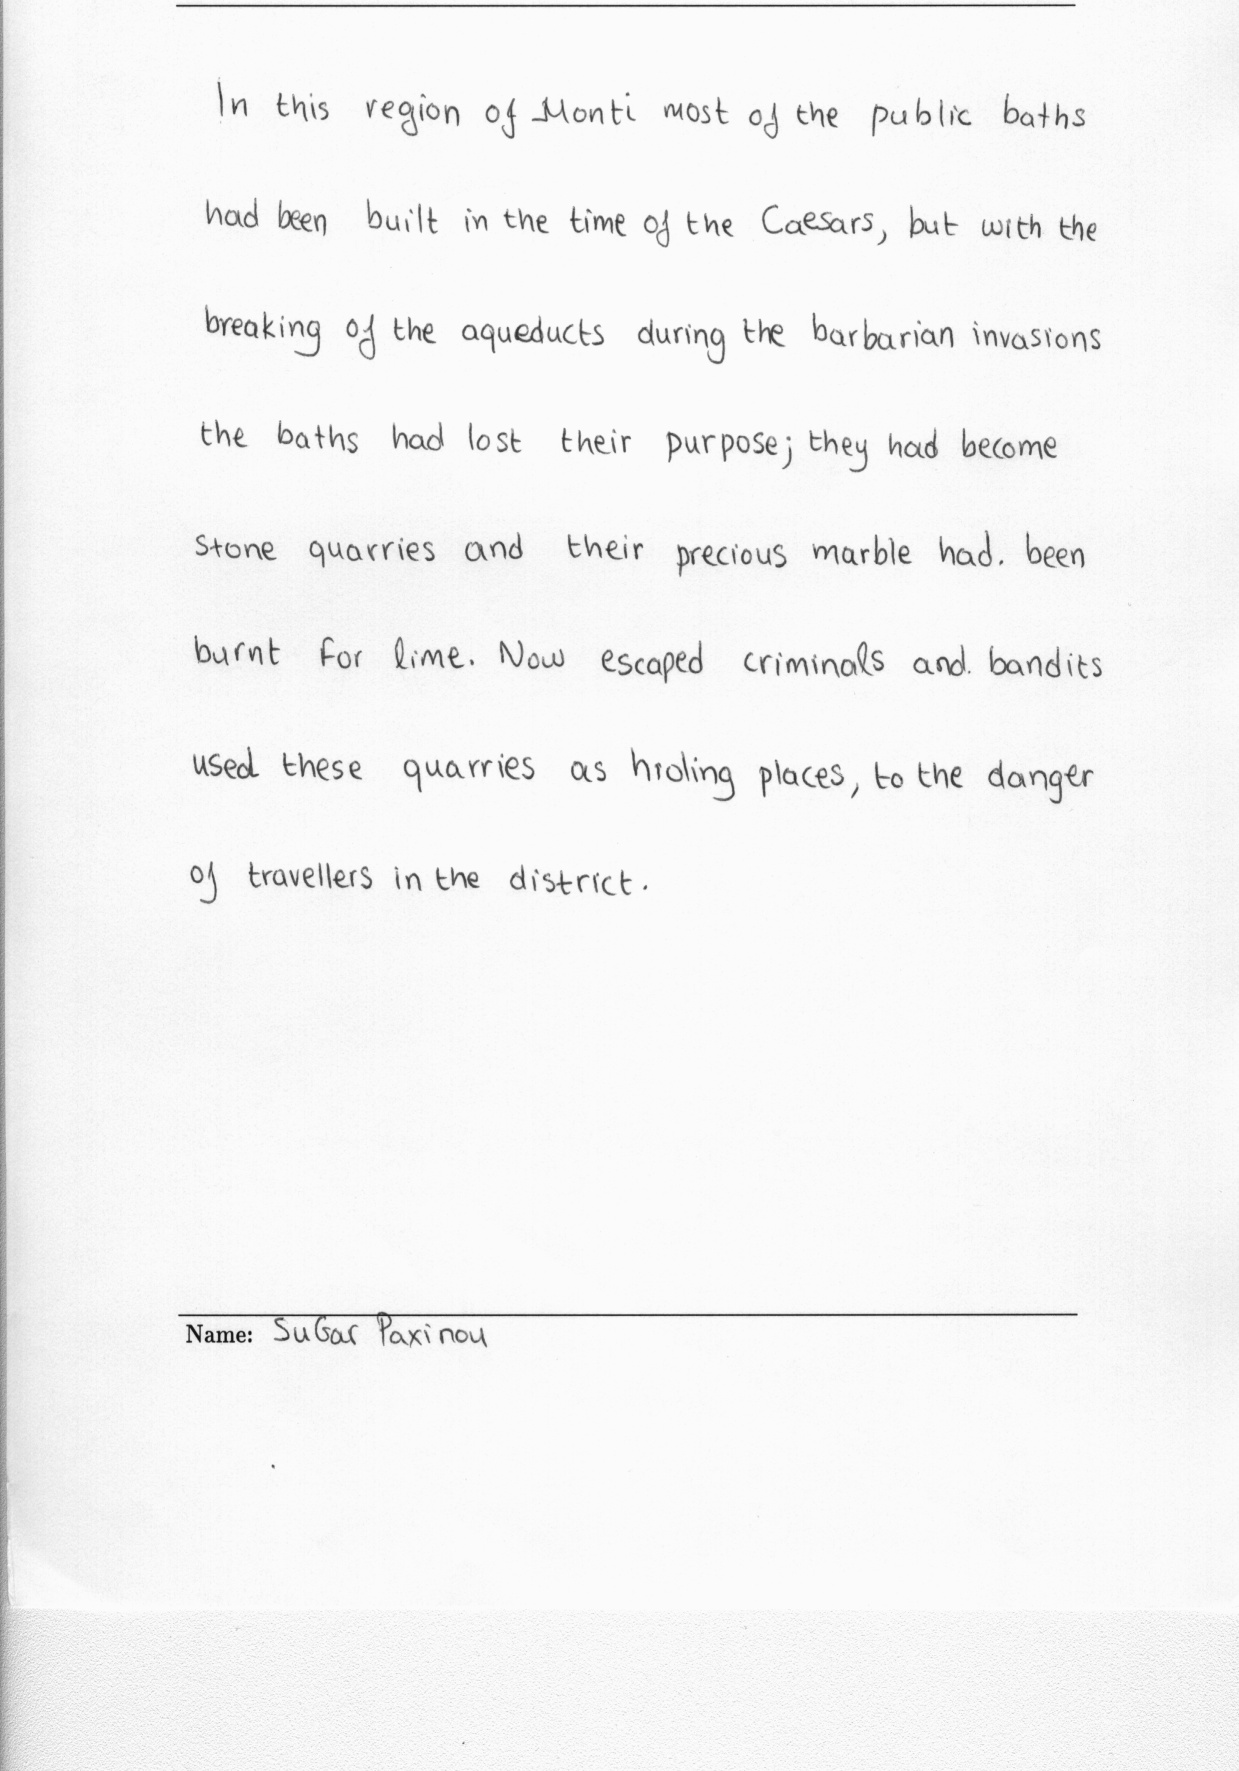 In this region of Monti most of the public baths
had been built in the time of the Caesars, but with the
breaking of the aqueducts during the barbarian invasions
the baths had lost their purpose; they had become
stone quarries and their precious marble had. been
burnt for lime. Now escaped criminals and. bandits
used these quarries as hiding places, to the danger
of travellers in the district.
Name: SuGar Paxinou